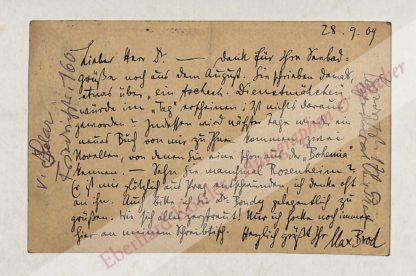 28.9.09
Lieber Herr Dr. — Dank für Ihre Seebad-
grüße noch aus dem August. Sie schrieben damals,
etwas über „ein tschech. Dienstmädchen"
würde im „Tag" erscheinen. Ist nichts daraus
geworden? Indessen wird nächster Tage wieder ein
neues Buch von mir zu Ihnen kommen, zwei
Novellen, von denen Sie eine schon aus der „Bohemia"
kennen. — Sehn Sie manchmal Rosenheim?
Er ist mir plötzlich aus Prag entschwunden, ich denke oft
an ihn. Auch bitte ich Dr. Bondy gelegentlich zu
grüßen. Wie sich alles zerstreut! Nur ich hocke noch immer
hier an meinem Schreibtisch. Herzlich grüßt Ihr Max Brod